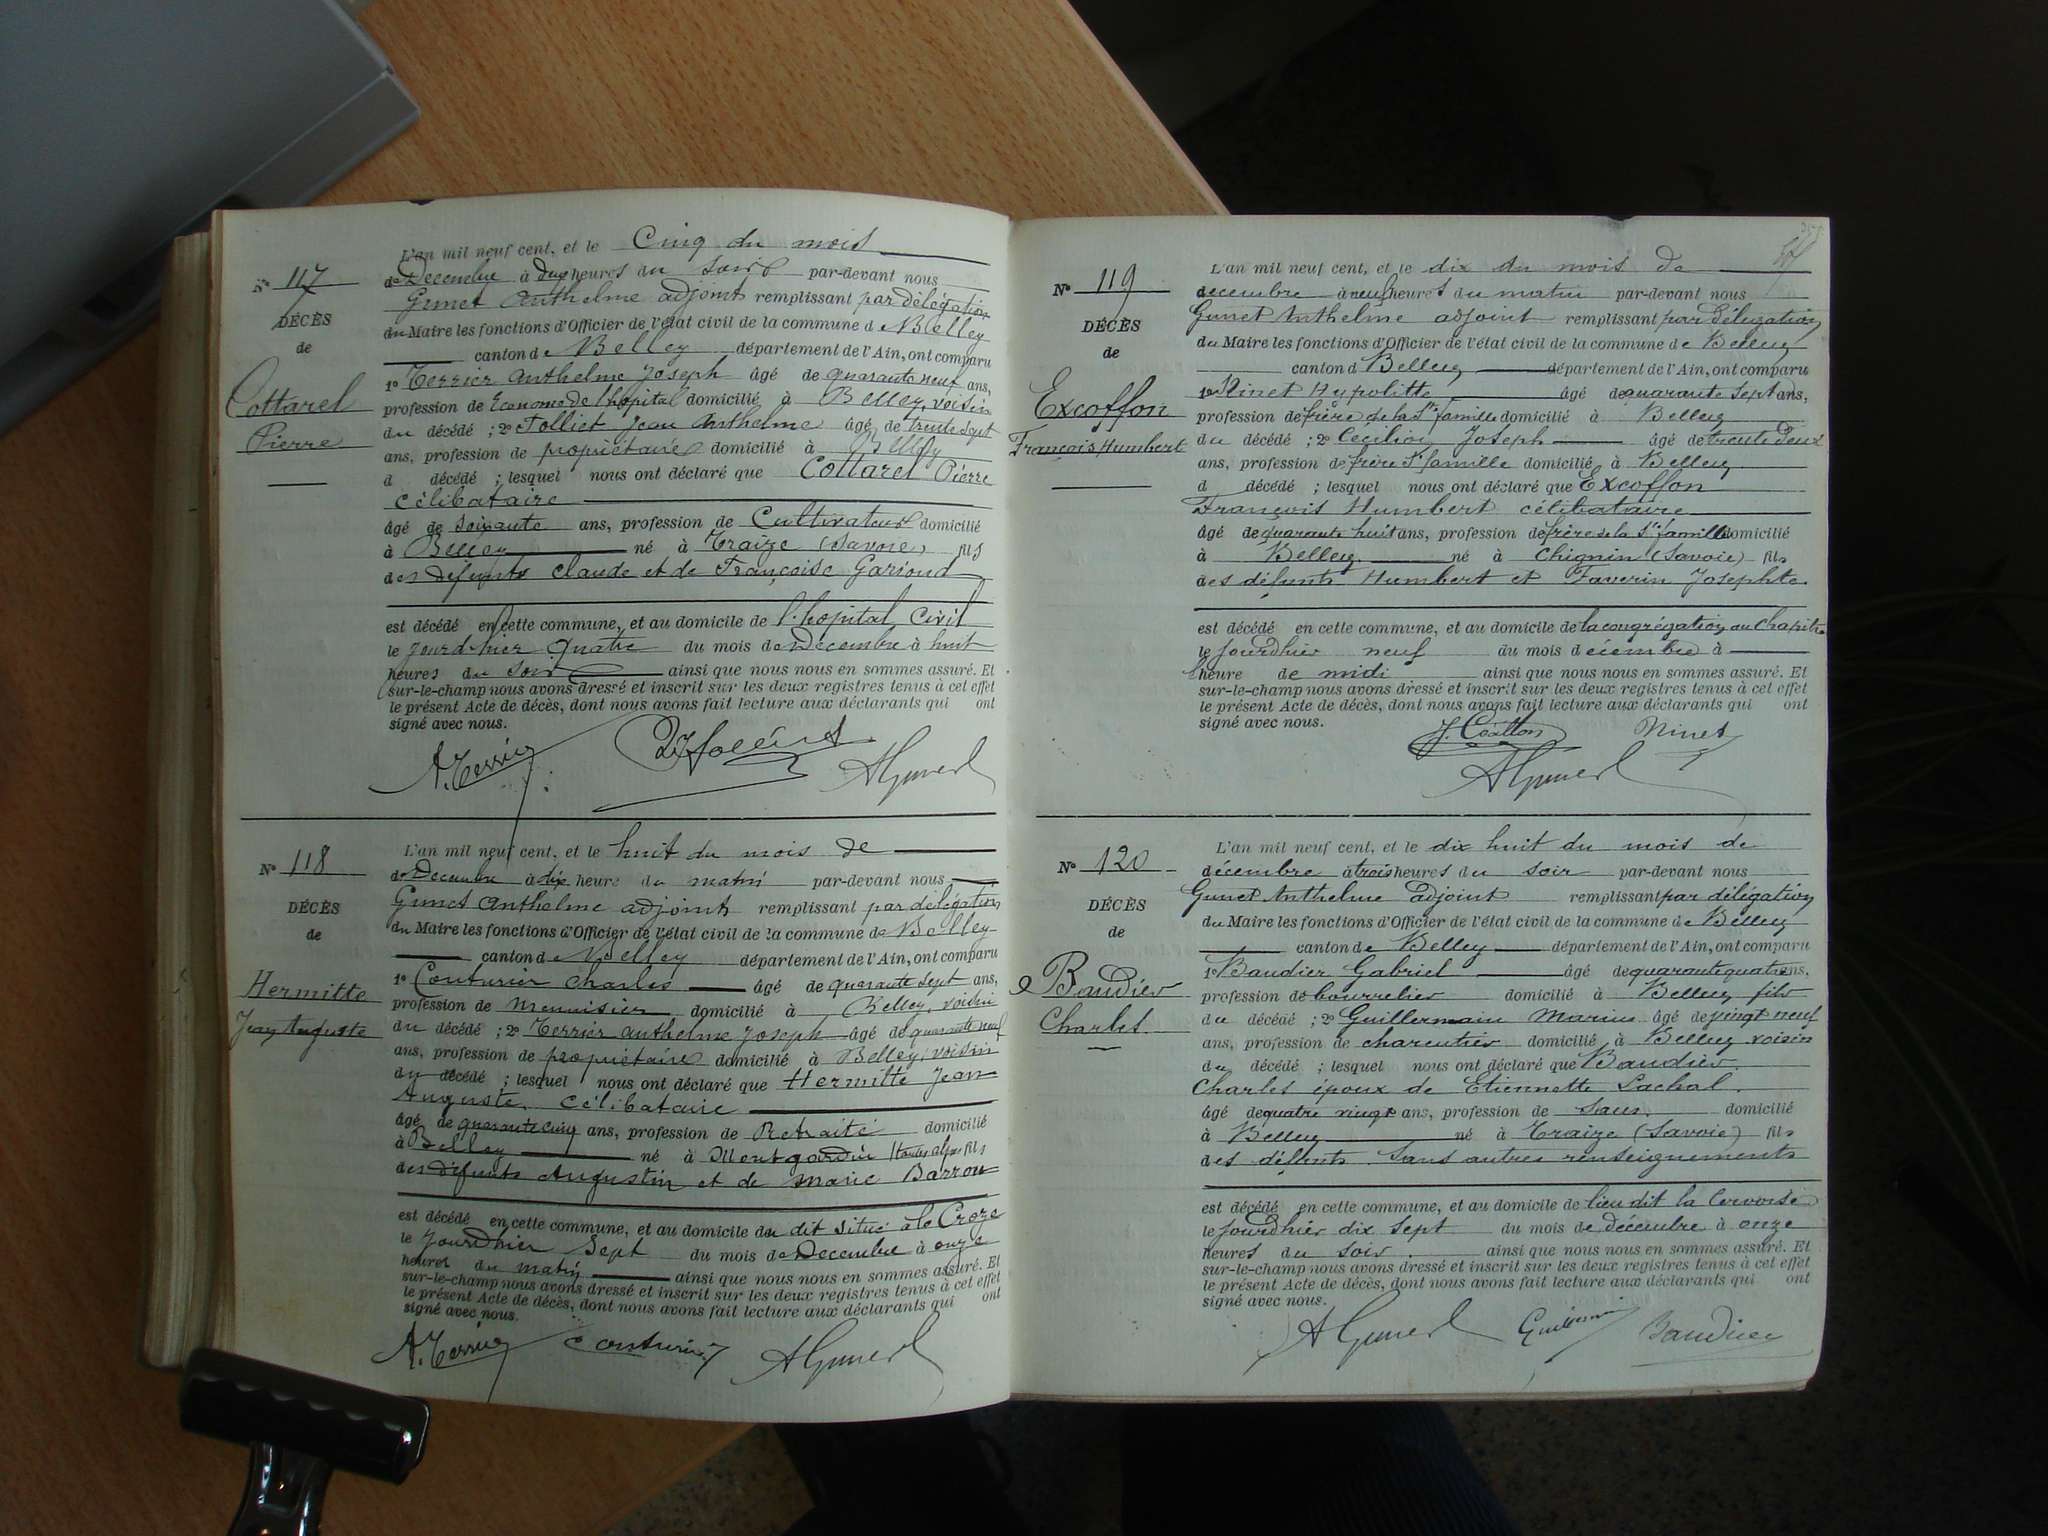 L'an mil neuf cent, et le Cinq du mois
N° 117
de Decembre à deux heures du soir par-devant nous
Gunet Anthelme adjoint remplissant par délégation
DÉCÈS
du Maire les fonctions d'Officier de l'état civil de la commune de Belley
de
canton de Belley département de l'Ain, ont comparu
1° Terrier Anthelme Joseph âgé de quarante neuf ans,
Cottarel
profession de Econome de l'hôpital domicilié à Belley, voisin
du décédé ; 2° Folliet Jean Anthelme âgé de trente sept
Pierre
ans, profession de propriétaire domicilié à Belley
d décédé ; lesquel nous ont déclaré que Cottarel Pierre
célibataire
âgé de soixante ans, profession de Cultivateur domicilié
à Belley né à Traize (Savoie) fils
des défunts Claude et de Françoise Gariond
est décédé en cette commune, et au domicile de l'hopital Civil
le jourdhier quatre du mois de Décembre à huit
heures du soir ainsi que nous nous en sommes assuré. Et
sur-le-champ nous avons dressé et inscrit sur les deux registres tenus à cet effet
le présent Acte de décès, dont nous avons fait lecture aux déclarants qui ont
signé avec nous.
A. Terrier AGunet
L'an mil neuf cent, et le huit du mois de
N° 118
de Decembre à dix heure du matin par-devant nous
Gunet Anthelme adjoint remplissant par délégation
DÉCÈS
du Maire les fonctions d'Officier de l'état civil de la commune de Belley
de
canton de Belley département de l'Ain, ont comparu
1° Couturier Charles âgé de quarante sept ans,
Hermitte
profession de menuisier domicilié à Belley, voisin
Jean Auguste
du décédé ; 2° Terrier Anthelme Joseph âgé de quarante neuf
ans, profession de propriétaire domicilié à Belley, voisin
du décédé ; lesquel nous ont déclaré que Hermitte Jean
Auguste, célibataire
âgé de quarante cinq ans, profession de Retraité domicilié
à Belley né à Montgardin (Hautes alpes) fils
des défunts Augustin et de Marie Barrou
est décédé en cette commune, et au domicile du dit situé à le Croze
le jourdhier sept du mois de Decembre à onze
heures du matin ainsi que nous nous en sommes assuré. Et
sur-le-champ nous avons dressé et inscrit sur les deux registres tenus à cet effet
le présent Acte de décès, dont nous avons fait lecture aux déclarants qui ont
signé avec nous.
A. Terrier Couturier AGunet
L'an mil neuf cent, et le dix du mois de
N° 119
décembre à neuf heures du matin par-devant nous
Gunet Anthelme adjoint remplissant par délégation
DÉCÈS
du Maire les fonctions d'Officier de l'état civil de la commune de Belley
de
canton d Belley département de l'Ain, ont comparu
1° Ninet Hypolitte âgé de quarante sept ans,
Excoffon
profession de frère de la Ste famille domicilié à Belley
François Humbert
du décédé ; 2° Joseph âgé de trente deux
ans, profession de frère Ste famille domicilié à Belley
d décédé ; lesquel nous ont déclaré que Excoffon
François Humbert célibataire
âgé de quarante huit ans, profession de frère de la Ste famille domicilié
à Belley né à Chignin (Savoie) fils
des défunts Humbert et Faverin Josephte
est décédé en cette commune, et au domicile de la congrégation au Chapitre
le jourdhier neuf du mois décembre à
l'heure de midi ainsi que nous nous en sommes assuré. Et
sur-le-champ nous avons dressé et inscrit sur les deux registres tenus à cet effet
le présent Acte de décès, dont nous avons fait lecture aux déclarants qui ont
signé avec nous.
Ninet
AGunet
L'an mil neuf cent, et le dix huit du mois de
N° 120
décembre à trois heures du soir par-devant nous
Gunet Anthelme adjoint remplissant par délégation
DÉCÈS
du Maire les fonctions d'Officier de l'état civil de la commune de Belley
de
canton de Belley département de l'Ain, ont comparu
1° Baudier Gabriel âgé de quarante quatre ans,
Baudier
profession de bourrelier domicilié à Belley fils
Charles
du décédé ; 2° Guillermain Marius âgé de vingt neuf
ans, profession de charcutier domicilié à Belley voisin
du décédé ; lesquel nous ont déclaré que Baudier
Charles époux de Etiennette Lachal
âgé de quatre vingt ans, profession de sans domicilié
à Belley né à Traize (Savoie) fils
des défunts sans autres renseignements
est décédé en cette commune, et au domicile de lieu dit la
le jourdhier dix sept du mois de décembre à onze
heures du soir ainsi que nous nous en sommes assuré. Et
sur-le-champ nous avons dressé et inscrit sur les deux registres tenus à cet effet
le présent Acte de décès, dont nous avons fait lecture aux déclarants qui ont
signé avec nous.
AGunet Baudier